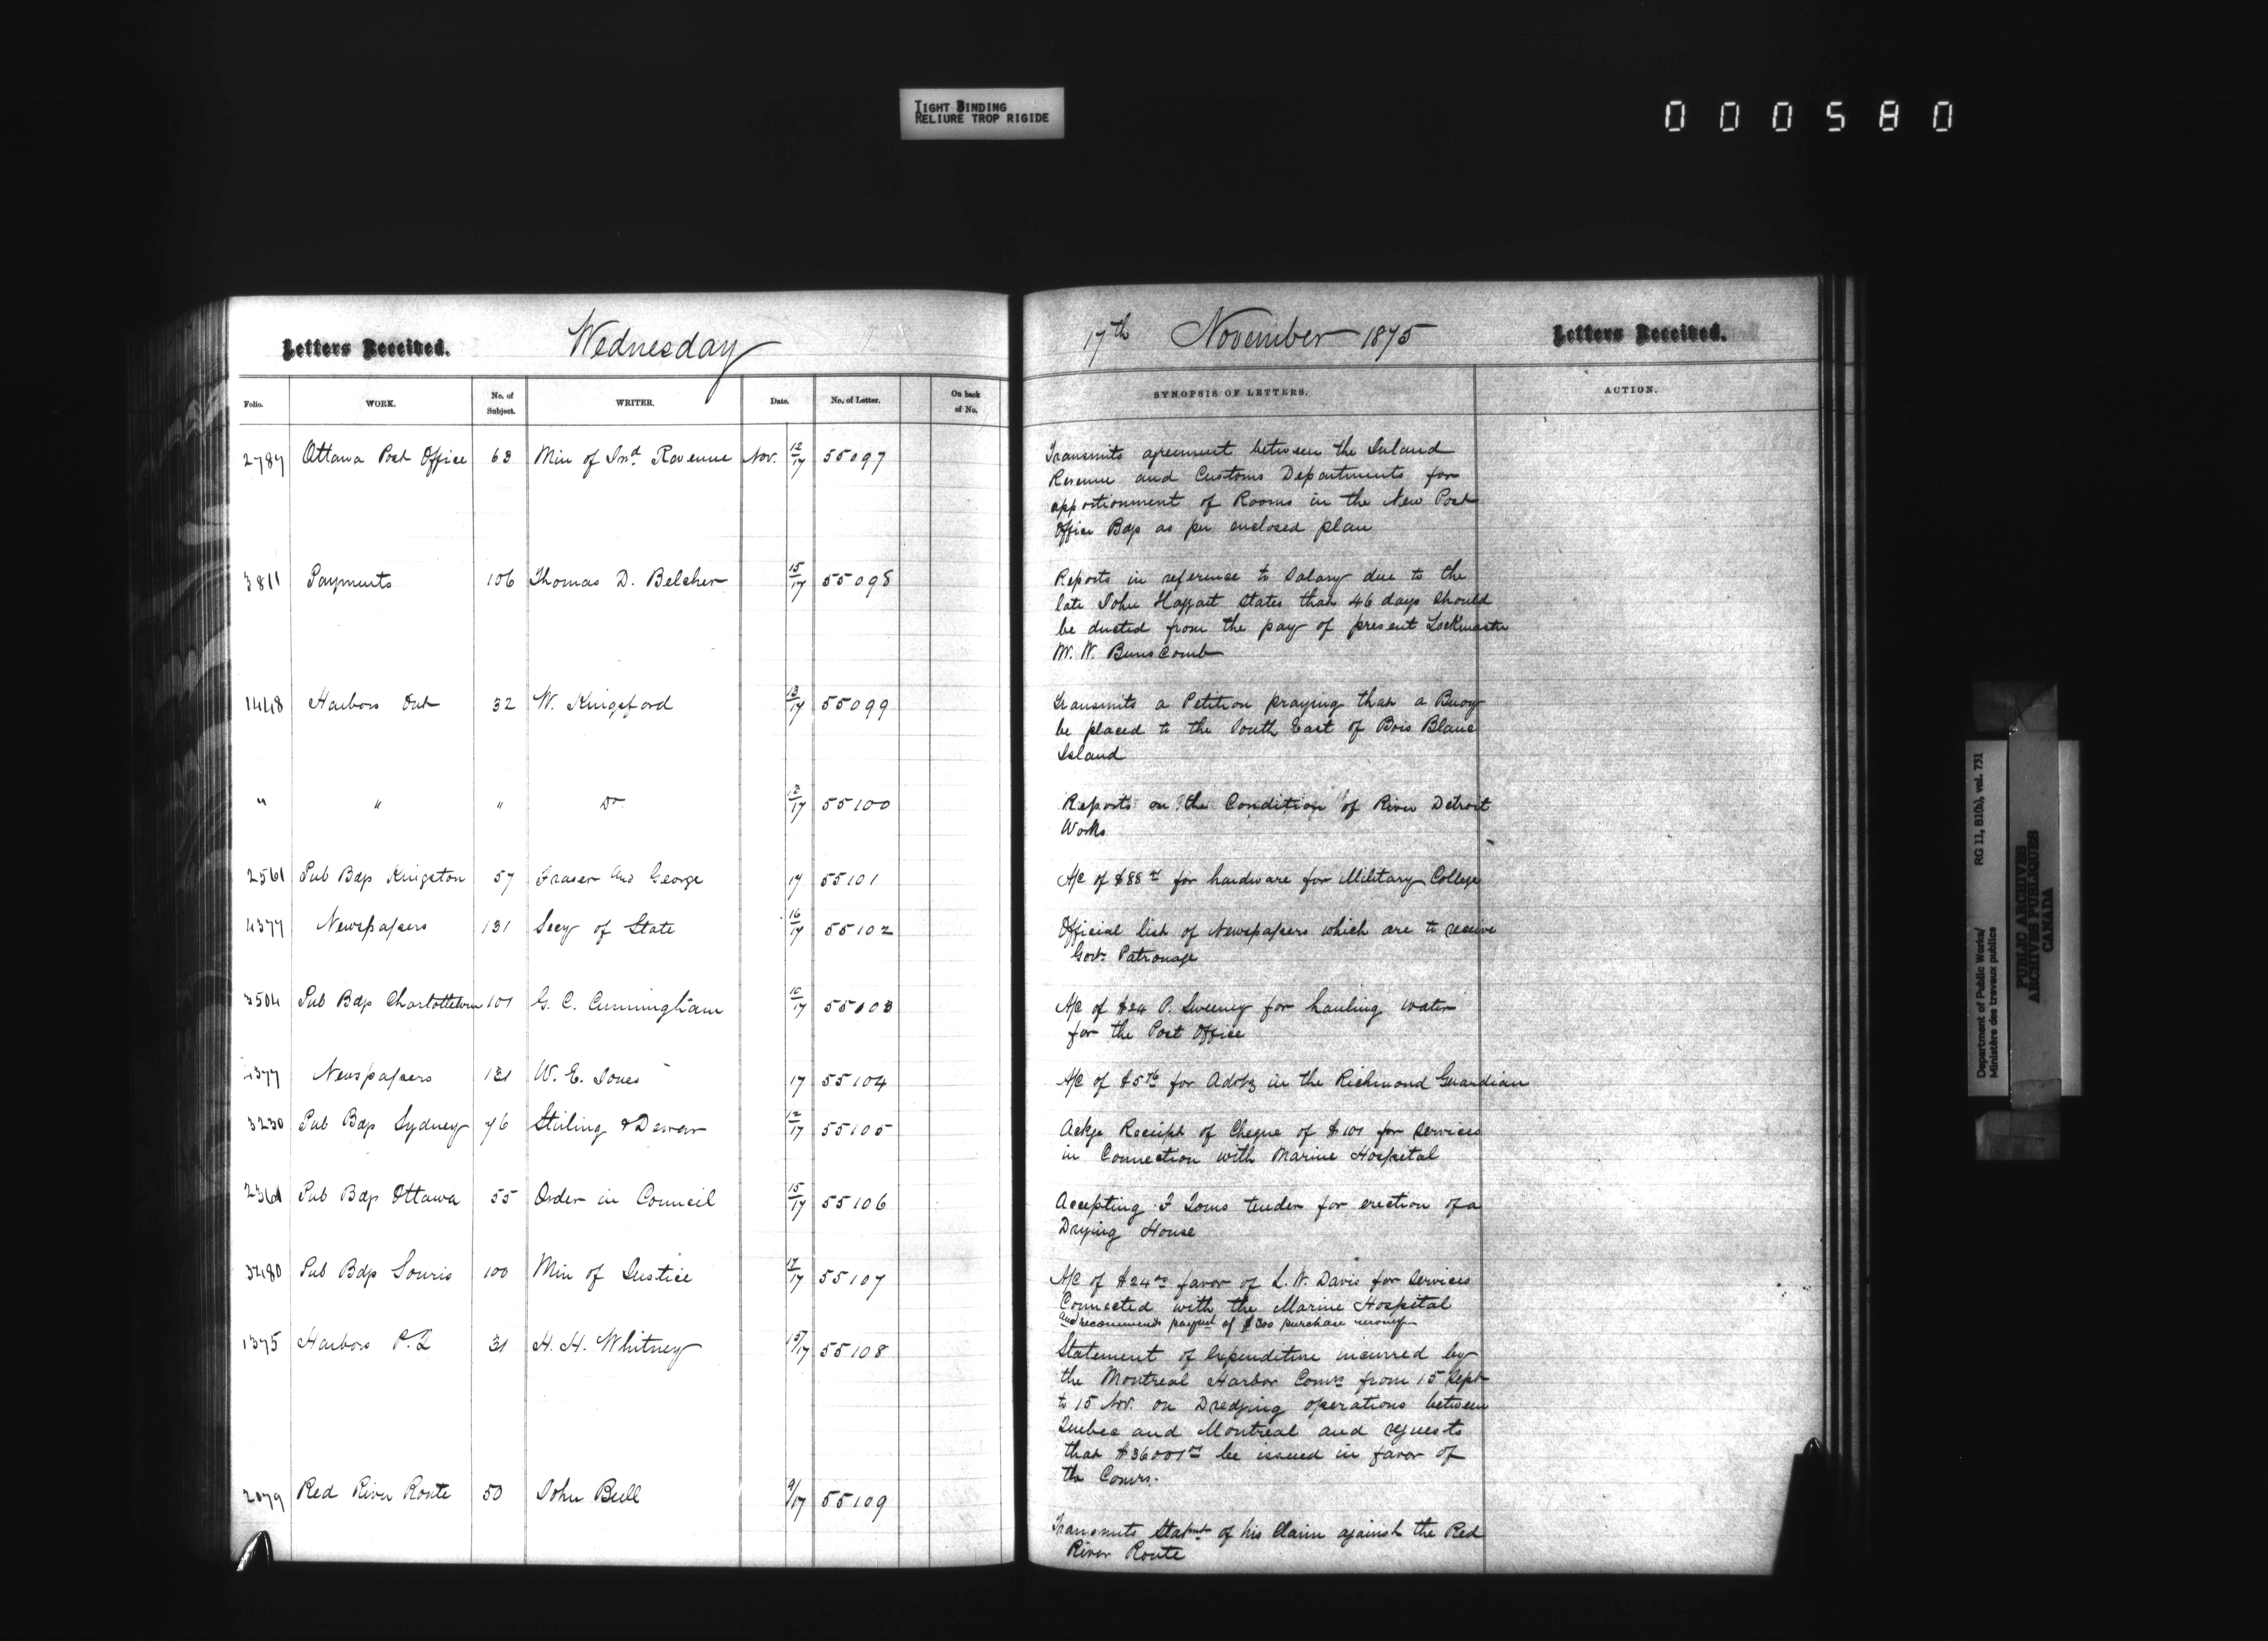 TIGHT BINDING
RELIURE TROP RIGIDE
000580
Letters Received. Wednesday
Folio. WORK. No. of Subject. WRITER. Date. No. of Letter. On back of No.
2787 Ottawa Post Office 63 Min of Ind. Revenue Nov. 12/17 55097
3811 Payments 106 Thomas D. Belcher 15/17 55098
1448 Harbors Ont 32 W. Kingsford 13/17 55099
" " " Do 13/17 55100
2561 Pub Bdgs Kingston 57 Fraser and George 17 55101
4377 Newspapers 131 Secy of State 16/17 55102
3504 Pub Bdgs Charlottetown 101 G. C. Cunningham 10/17 55103
4377 Newspapers 131 W. E. Jones 17 55104
3230 Pub Bdgs Sydney 76 Stirling & Dewar 12/17 55105
2361 Pub Bdgs Ottawa 55 Order in Council 15/17 55106
3480 Pub Bdgs Souris 100 Min of Justice 17/17 55107
1375 Harbors P.Q 31 H. H. Whitney 15/17 55108
2079 Red River Route 50 John Bell 9/17 55109
17th November 1875 Letters Received.
SYNOPSIS OF LETTERS. ACTION.
Transmits agreement between the Inland
Revenue and Customs Departments for
apportionment of Rooms in the New Post
Office Bdgs as per enclosed plan
Reports in reference to Salary due to the
late John Haggart States that 46 days should
be ducted from the pay of present Lockmaster
M. W. Bunscomb
Transmits a Petition praying that a Buoy
be placed to the South East of Bois Blanc
Island
Reports on the Condition of River Detroit
Works
A/c of $88 for hardware for Military College
Official list of Newspapers which are to receive
Govt. Patronage
A/c of $24 P. Sweeney for hauling water
for the Post Office
A/c of $5 76 for Advtg in the Richmond Guardian
Ackge Receipt of Cheque of $101 for Services
in Connection with Marine Hospital
Accepting F Toms tender for erection of a
Drying House
A/c of $24 favor of L. W. Davis for Services
Connected with the Marine Hospital
and recommends payment of $300 purchase money
Statement of Expenditure incurred by
the Montreal Harbor Comrs from 15 Sept
to 15 Nov. on Dredging operations between
Quebec and Montreal and requests
that $36001 be issued in favor of
the Comrs.
Transmits Statmt of his Claim against the Red
River Route
Department of Public Works/ RG 11, B1(b), vol. 731
Ministère des travaux publics
PUBLIC ARCHIVES
ARCHIVES PUBLIQUES
CANADA